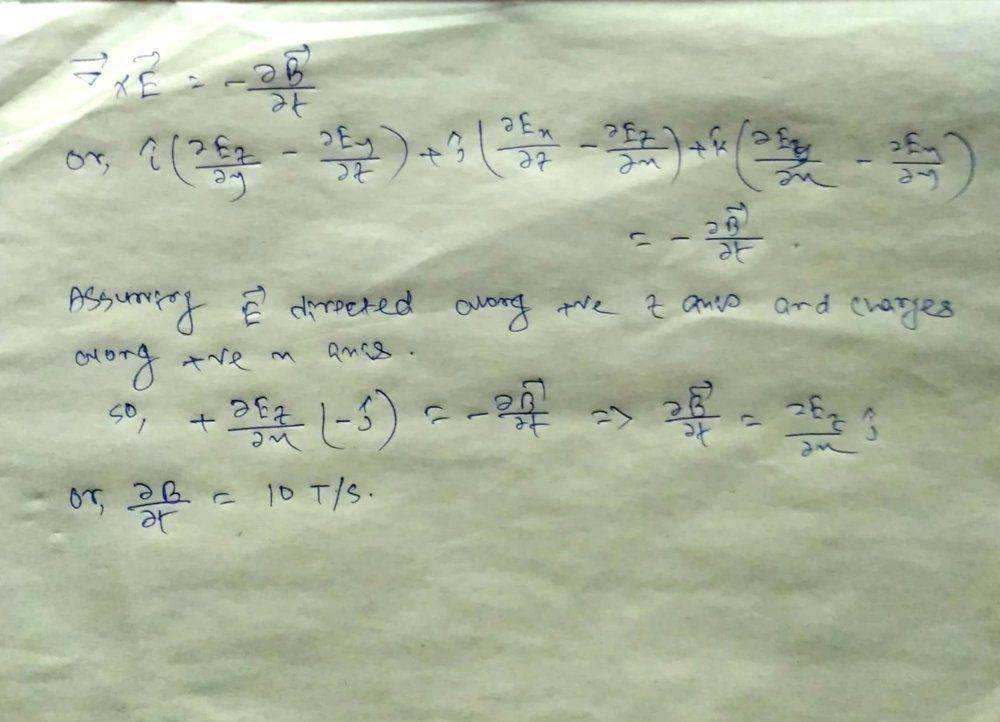 ∇⃗ × E⃗ = - ∂B⃗/∂t
or, î(∂Ez/∂y - ∂Ey/∂z) + ĵ(∂Ex/∂z - ∂Ez/∂x) + k̂(∂Ey/∂x - ∂Ex/∂y)
= - ∂B⃗/∂t .
Assuming E⃗ directed along +ve z axis and changes
along +ve x axis.
so, + ∂Ez/∂x (-ĵ) = - ∂B⃗/∂t => ∂B⃗/∂t = ∂Ez/∂x ĵ
or, ∂B/∂t = 10 T/S.